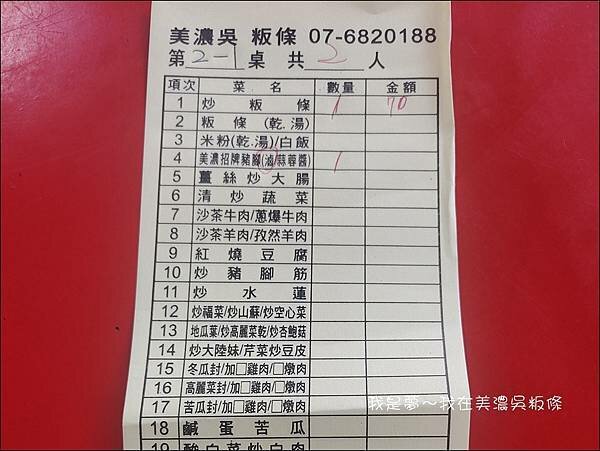 美濃吳 粄條 07-6820188
第 2-1 桌 共 2 人
項次 菜名 數量 金額
1 炒粄條 1 70
2 粄條(乾.湯)
3 米粉(乾.湯)/白飯
4 美濃招牌豬腳(滷/蒜蓉醬) 1
5 薑絲炒大腸
6 清炒蔬菜
7 沙茶牛肉/蔥爆牛肉
8 沙茶羊肉/孜然羊肉
9 紅燒豆腐
10 炒豬腳筋
11 炒水蓮
12 炒福菜/炒山蘇/炒空心菜
13 地瓜葉/炒高麗菜乾/炒杏鮑菇
14 炒大陸妹/芹菜炒豆皮
15 冬瓜封/加□雞肉/□燉肉
16 高麗菜封/加□雞肉/□燉肉
17 苦瓜封/加□雞肉/□燉肉
18 鹹蛋苦瓜
19 酸白菜炒白肉
我是夢～我在美濃吳粄條